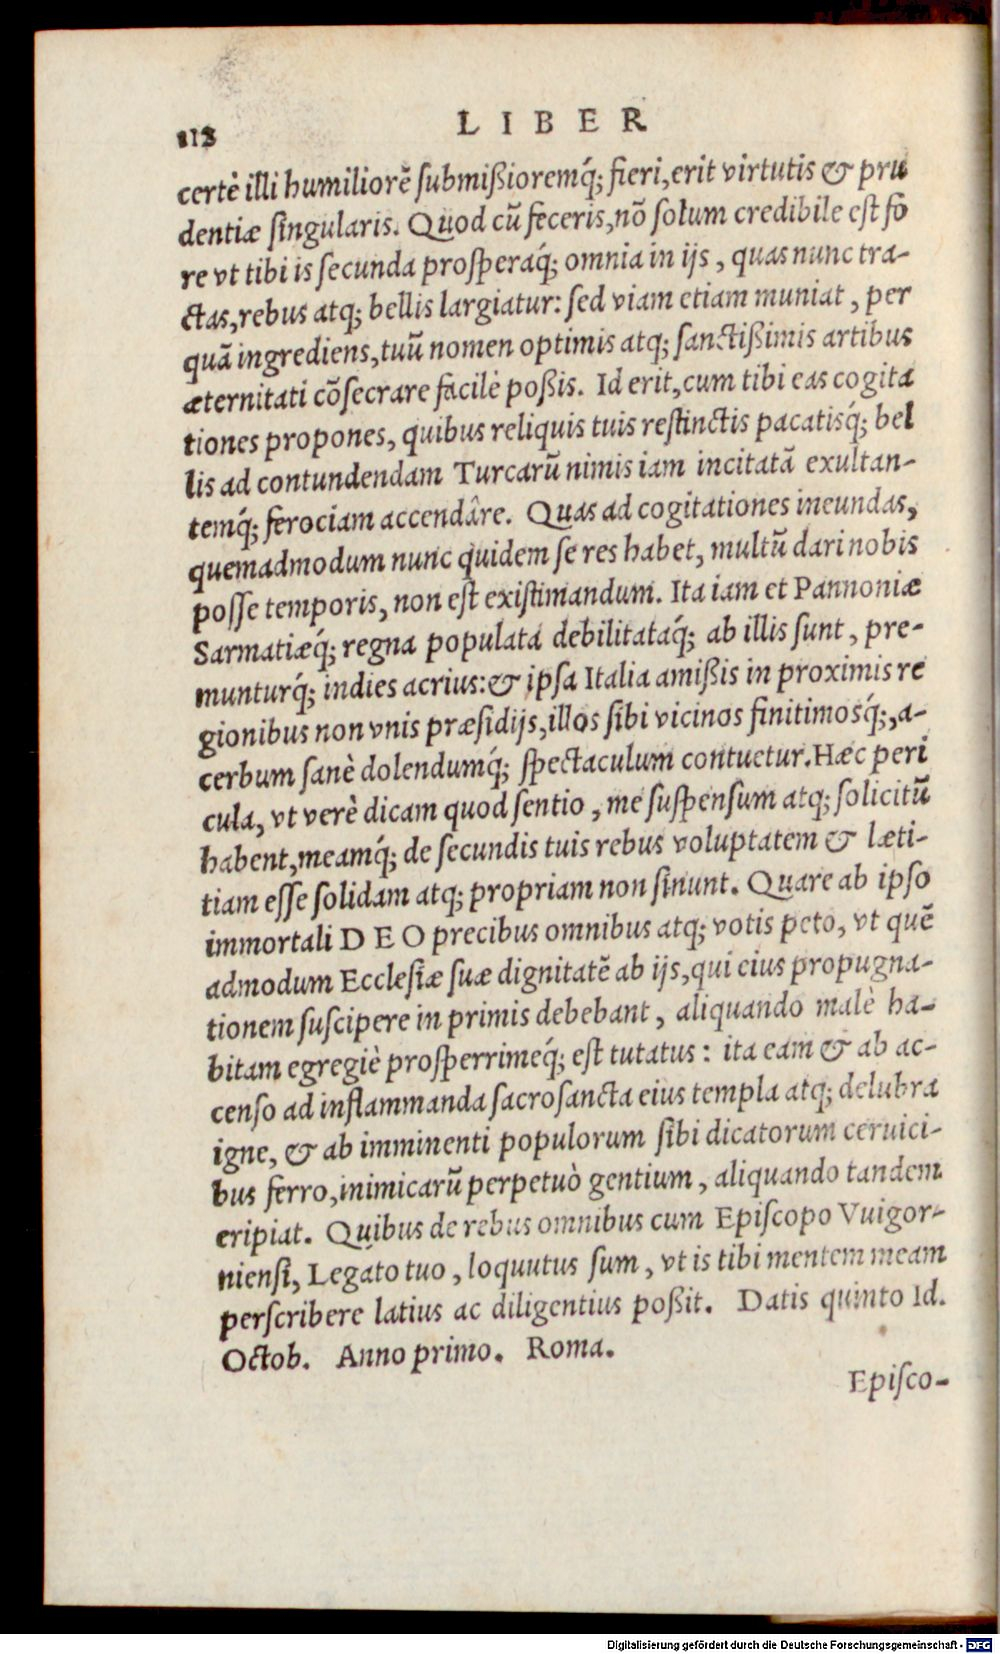 112 LIBER
certè illi humiliorē ſubmißioremq́; fieri, erit virtutis & pru
dentiæ ſingularis. Quod cū feceris, nō ſolum credibile eſt fo
re vt tibi is ſecunda proſperaq́; omnia in ijs, quas nunc tra-
ctas, rebus atq; bellis largiatur: ſed viam etiam muniat, per
quā ingrediens, tuū nomen optimis atq; ſanctißimis artibus
æternitati cōſecrare facilè poßis. Id erit, cum tibi eas cogita
tiones propones, quibus reliquis tuis reſtinctis pacatisq́; bel
lis ad contundendam Turcarū nimis iam incitatā exultan-
temq́; ferociam accendâre. Quas ad cogitationes ineundas,
quemadmodum nunc quidem ſe res habet, multū dari nobis
poſſe temporis, non eſt exiſtimandum. Ita iam et Pannoniæ
Sarmatiæq́; regna populata debilitataq́; ab illis ſunt, pre-
munturq́; indies acrius: & ipſa Italia amißis in proximis re
gionibus non vnis præſidijs, illos ſibi vicinos finitimosq́;, a-
cerbum ſanè dolendumq́; ſpectaculum contuetur. Hæc peri
cula, vt verè dicam quod ſentio, me ſuſpenſum atq; ſolicitū
habent, meamq́; de ſecundis tuis rebus voluptatem & læti-
tiam eſſe ſolidam atq; propriam non ſinunt. Quare ab ipſo
immortali DEO precibus omnibus atq; votis peto, vt quē
admodum Eccleſiæ ſuæ dignitatē ab ijs, qui eius propugna-
tionem ſuſcipere in primis debebant, aliquando malè ha-
bitam egregiè proſperrimeq́; eſt tutatus: ita eam & ab ac-
cenſo ad inflammanda ſacroſancta eius templa atq; delubra
igne, & ab imminenti populorum ſibi dicatorum ceruici-
bus ferro, inimicarū perpetuò gentium, aliquando tandem
eripiat. Quibus de rebus omnibus cum Epiſcopo Vuigor-
nienſi, Legato tuo, loquutus ſum, vt is tibi mentem meam
perſcribere latius ac diligentius poßit. Datis quinto Id.
Octob. Anno primo. Roma.
Epiſco-
Digitalisierung gefördert durch die Deutsche Forschungsgemeinschaft - DFG